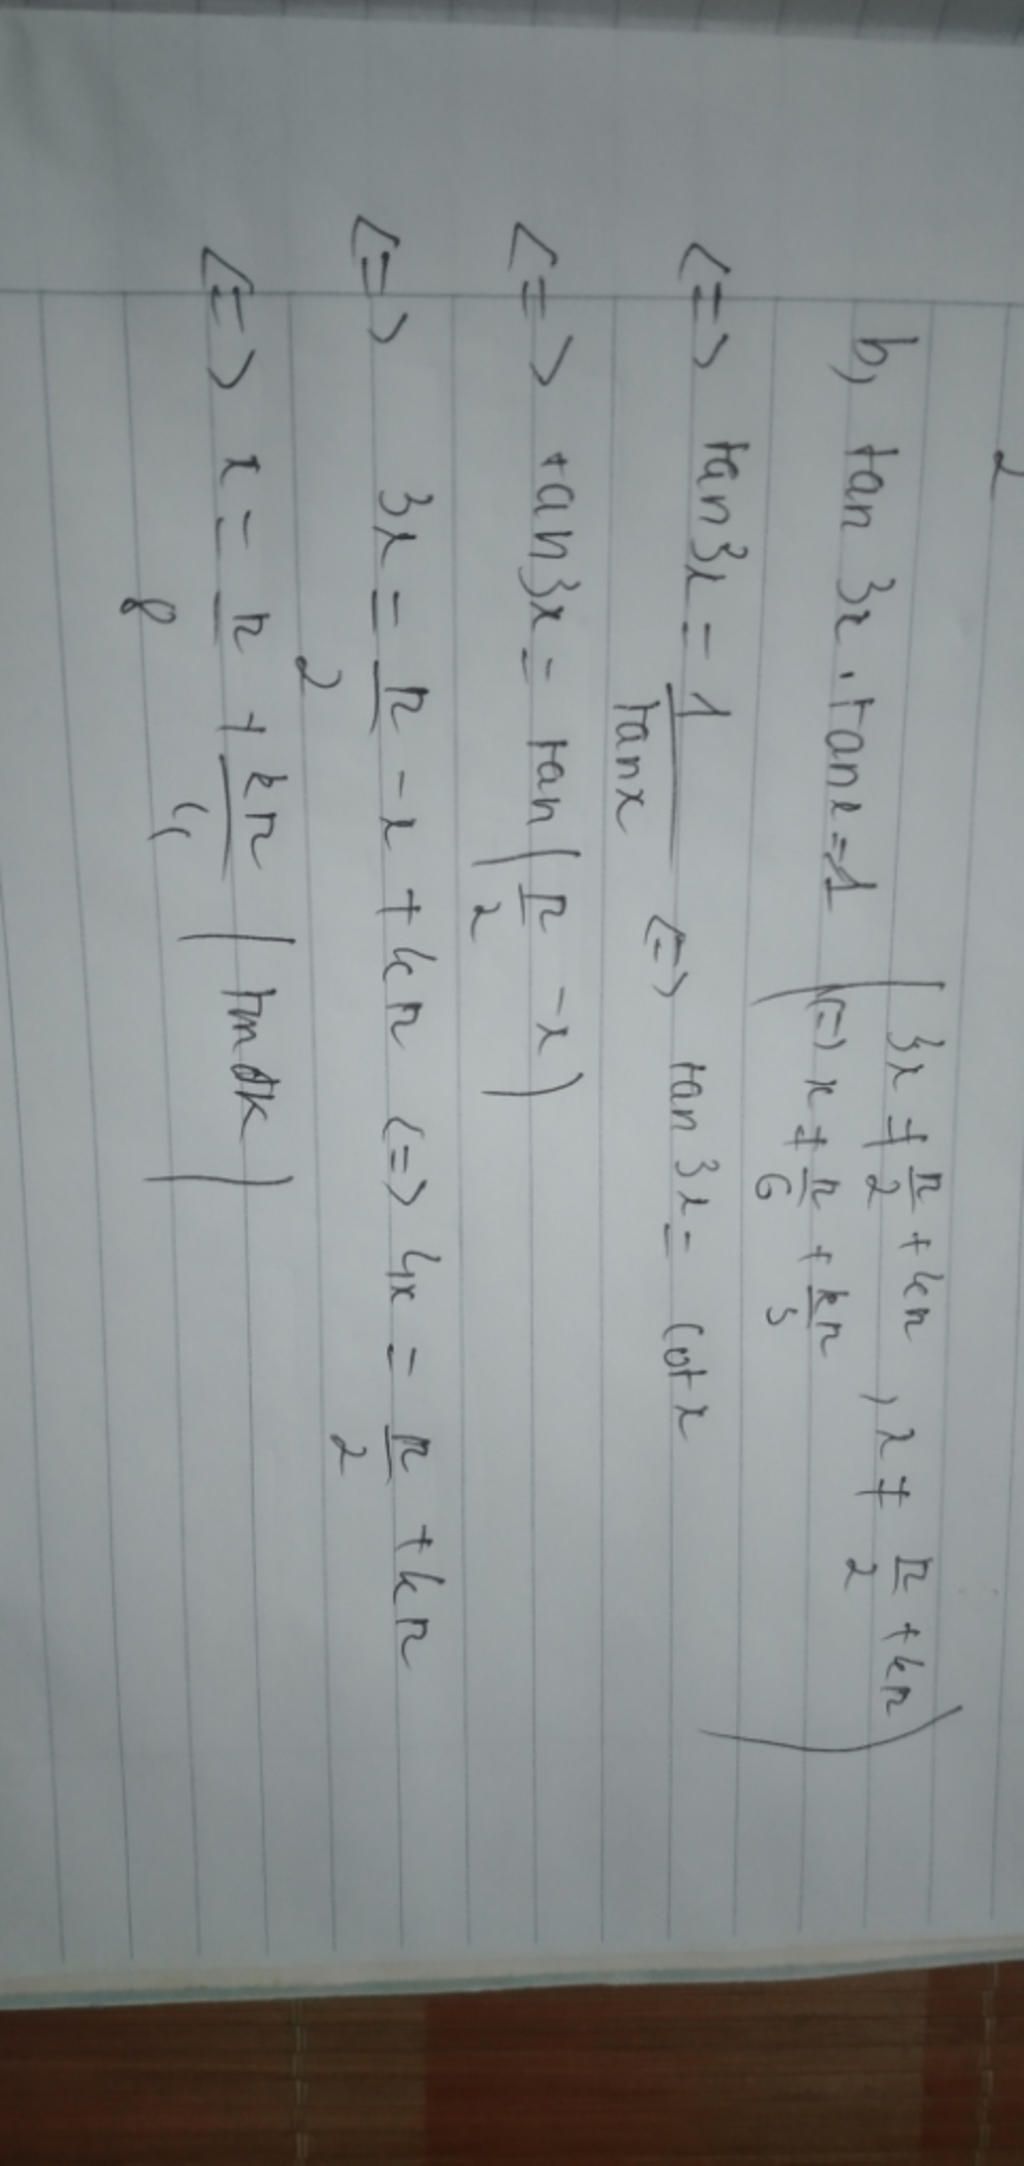 2
b, tan 3x . tan x = 1 ( 3x ≠ π/2 + kπ , x ≠ π/2 + kπ
(=) x ≠ π/6 + kπ/3 )
<=> tan 3x = 1/tan x <=> tan 3x = cot x
<=> tan 3x = tan ( π/2 - x )
<=> 3x = π/2 - x + kπ <=> 4x = π/2 + kπ
<=> x = π/8 + kπ/4 ( tmđk )